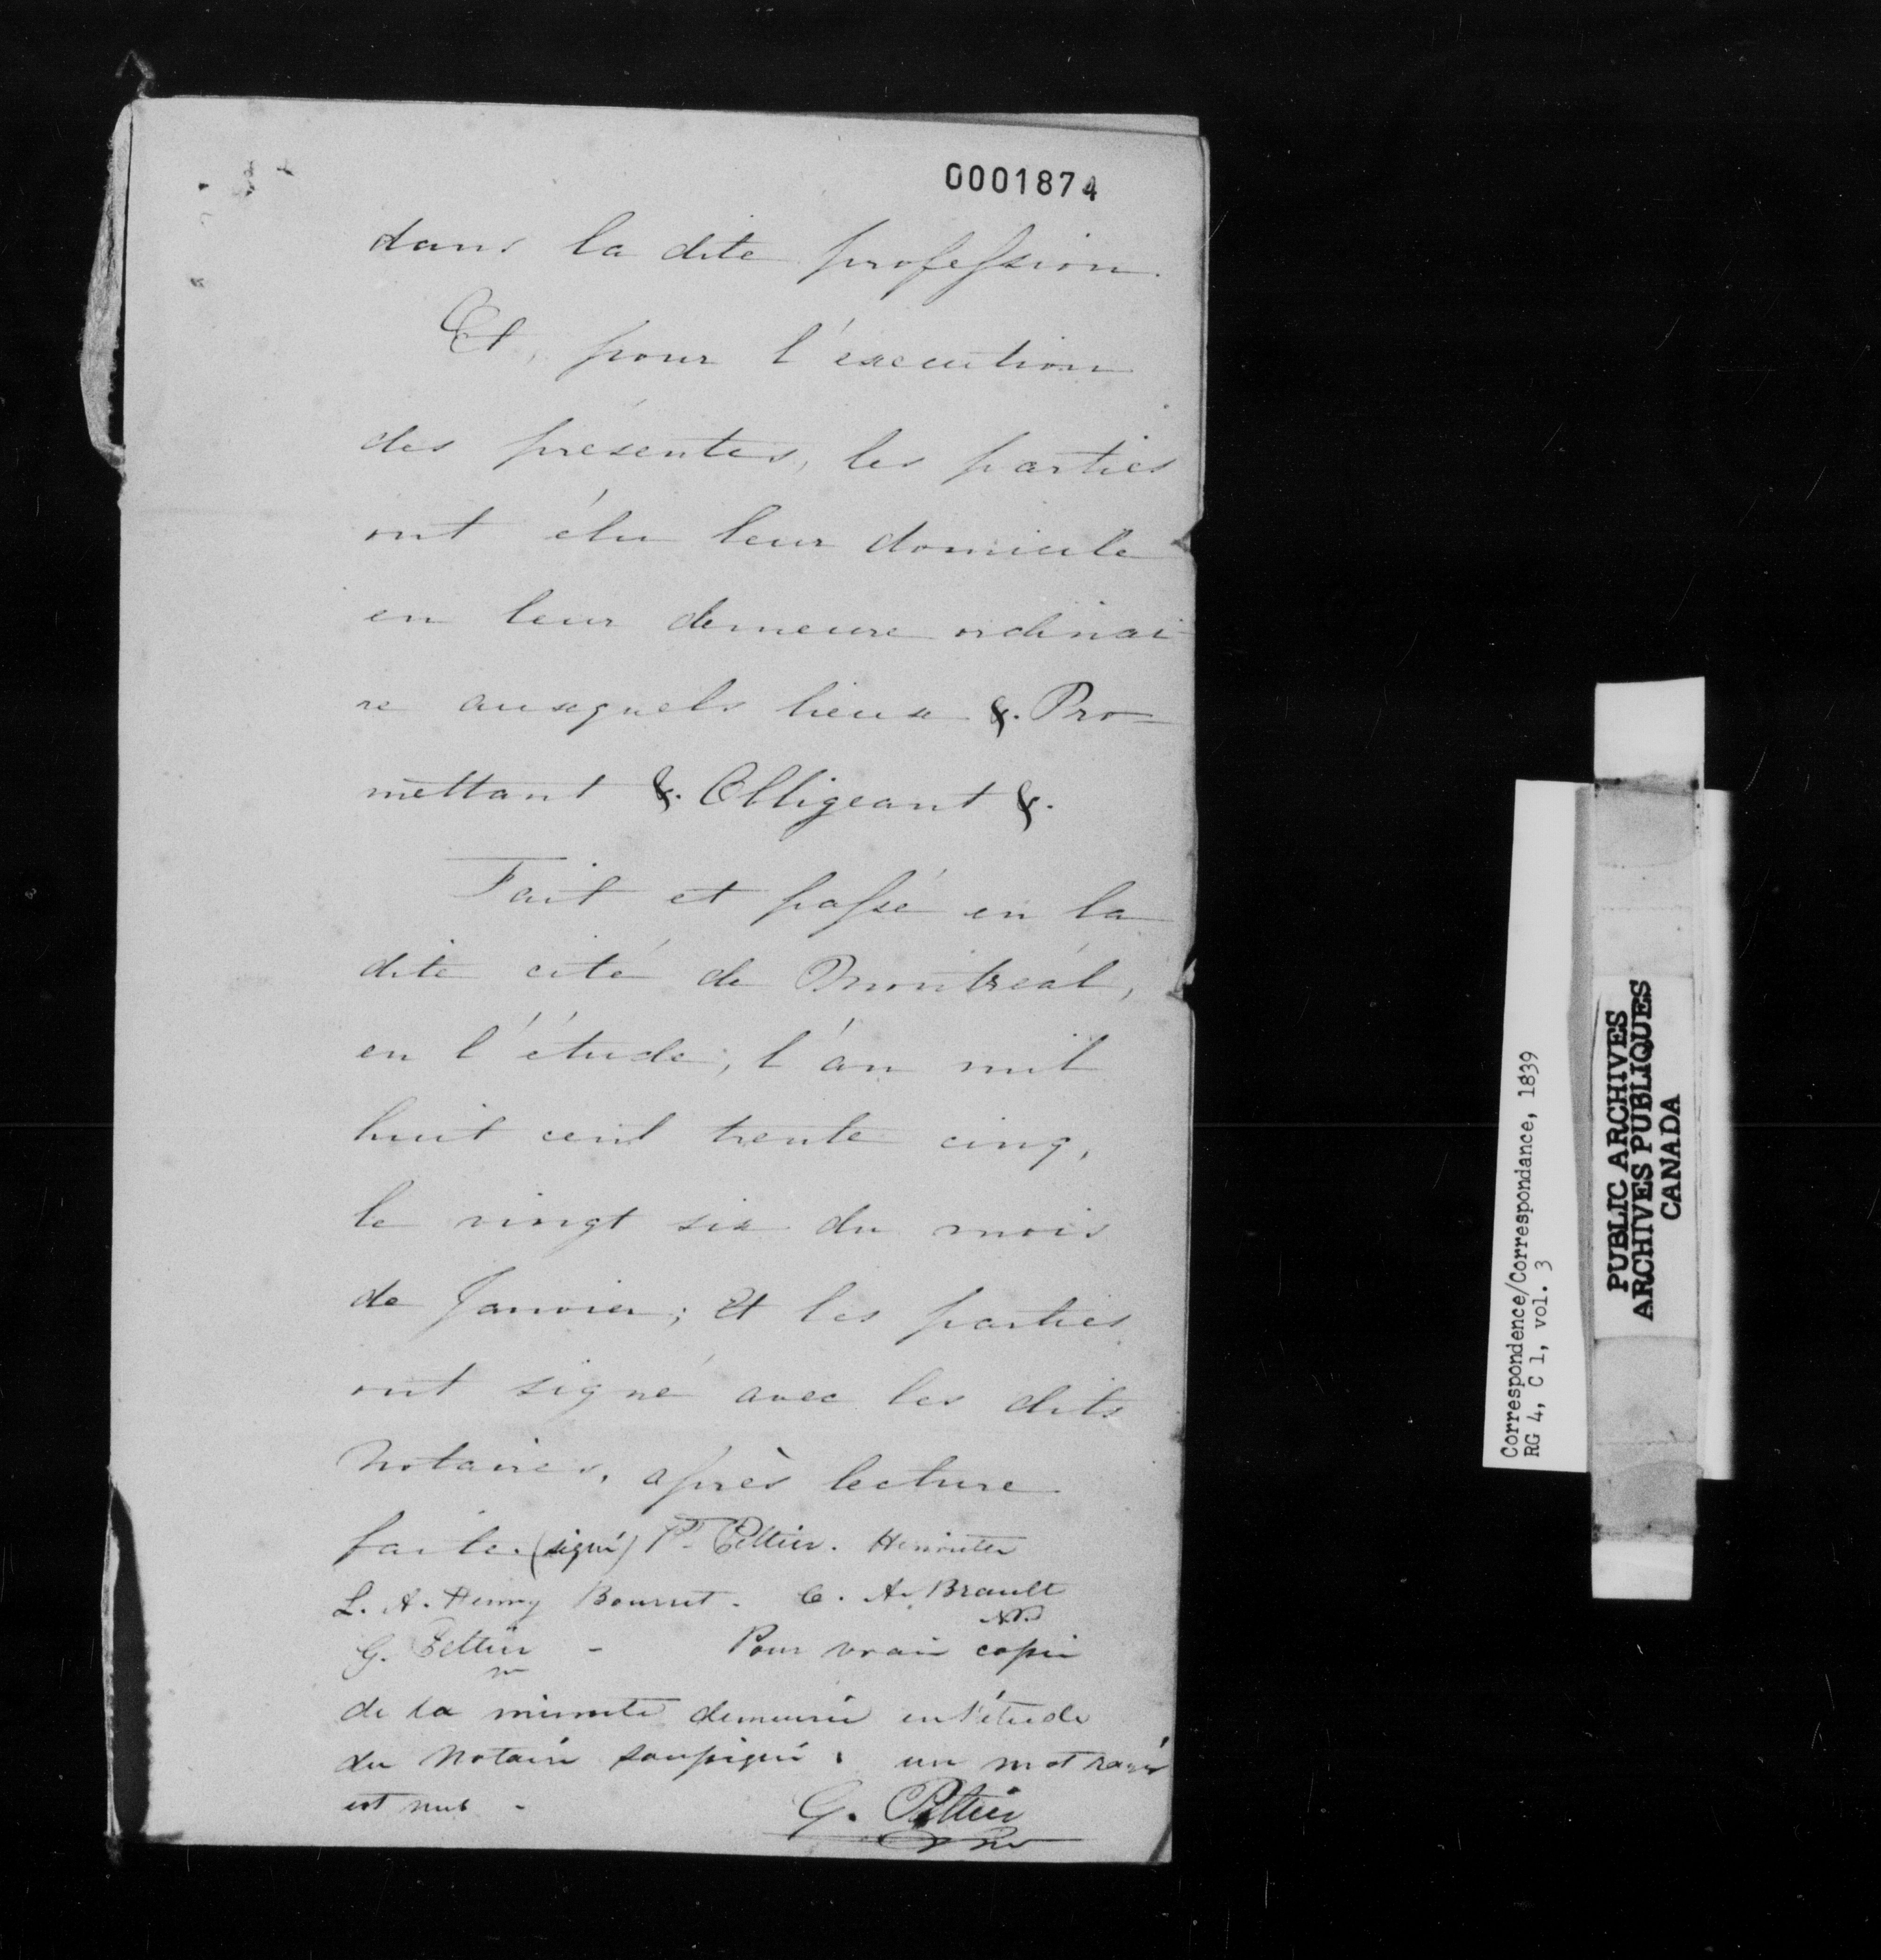 0001874
dans la dite profession.
Et, pour l'execution
des présentes, les parties
ont élu leur domicile
en leur demeure ordinai-
re auxquels lieux &. Pro-
mettant &. Obligeant &.
Fait et passé en la
dite cité de Montréal,
en l'étude, l'an mil
huit cent trente cinq,
le vingt six du mois
de Janvier; Et les parties
ont signé avec les dits
Notaires, après lecture
faite. (signé) Pr. Peltier.
L. A. Henry Bourret. C. A. Brault
NP.
G. Peltier - Pour vraie copie
de la minute demeurée en l'étude
du Notaire soussigné. un mot rayé
est nul -
G. Peltier
Correspondence/Correspondance, 1839
RG 4, C 1, vol. 3
PUBLIC ARCHIVES
ARCHIVES PUBLIQUES
CANADA